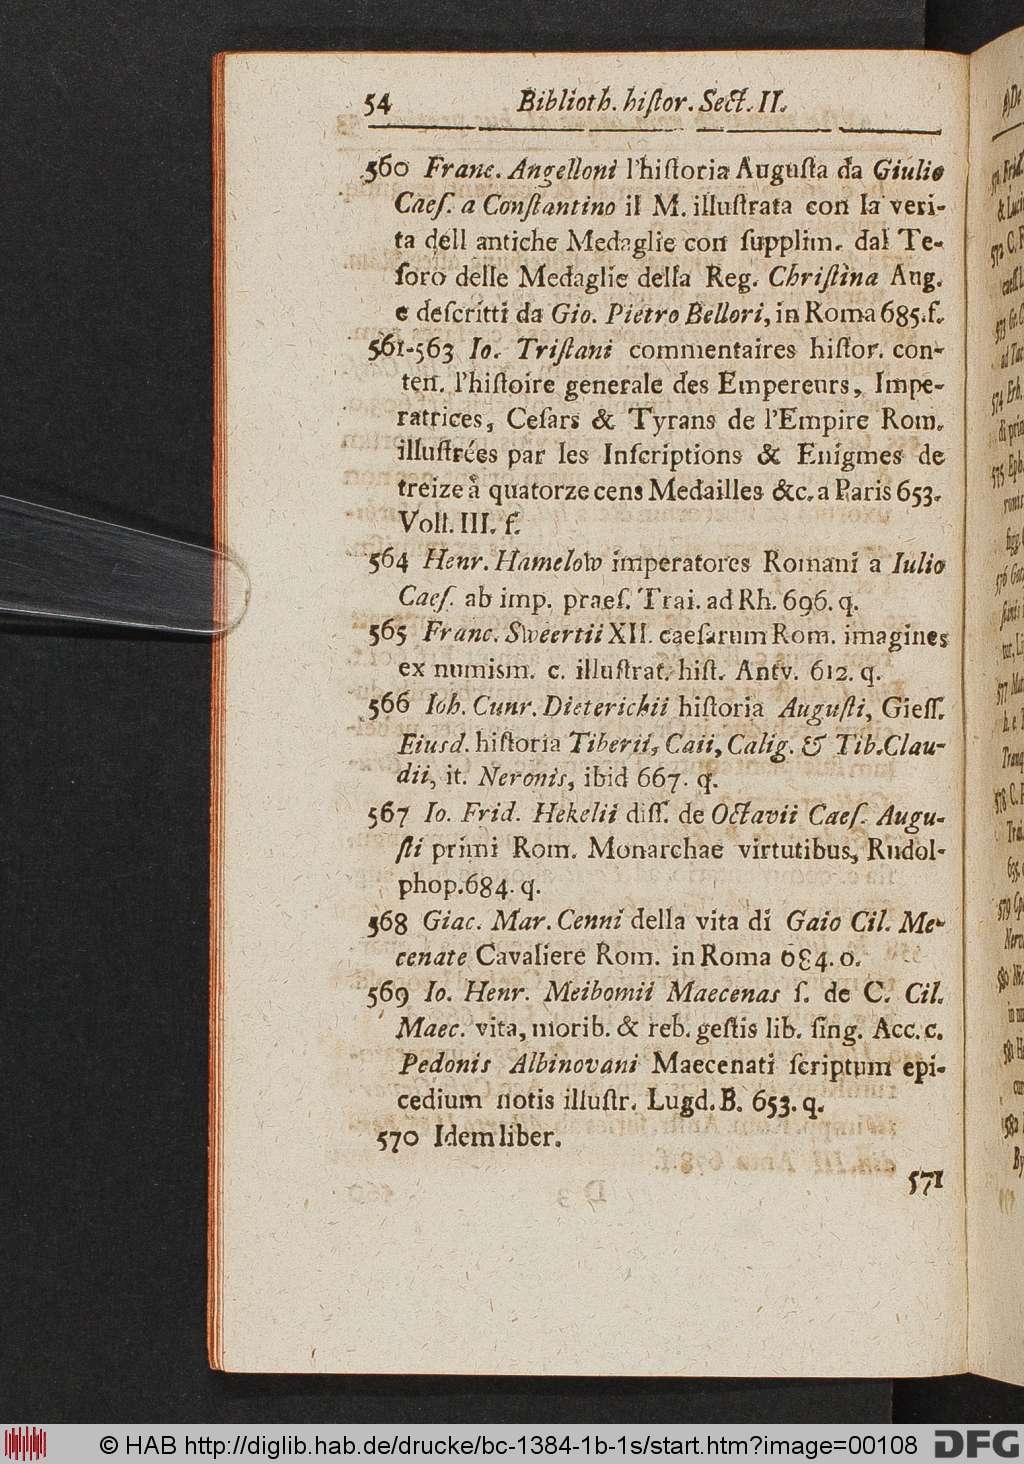 54 Biblioth. histor. Sect. II.
560 Franc. Angelloni l'historia Augusta da Giulio
Caes. a Constantino il M. illustrata con la veri-
ta dell antiche Medaglie con supplim. dal Te-
soro delle Medaglie della Reg. Christina Aug.
e descritti da Gio. Pietro Bellori, in Roma 685. f.
561-563 Io. Tristani commentaires histor. con-
ten. l'histoire generale des Empereurs, Impe-
ratrices, Cesars & Tyrans de l'Empire Rom.
illustrées par les Inscriptions & Enigmes de
treize à quatorze cens Medailles &c. a Paris 653.
Voll. III. f.
564 Henr. Hamelow imperatores Romani a Iulio
Caes. ab imp. praes. Trai. ad Rh. 696. q.
565 Franc. Sweertii XII. caesarum Rom. imagines
ex numism. c. illustrat. hist. Antv. 612. q.
566 Ioh. Cunr. Dieterichii historia Augusti, Giess.
Eiusd. historia Tiberii, Caii, Calig. & Tib. Clau-
dii, it. Neronis, ibid 667. q.
567 Io. Frid. Hekelii diss. de Octavii Caes. Augu-
sti primi Rom. Monarchae virtutibus, Rudol-
phop. 684. q.
568 Giac. Mar. Cenni della vita di Gaio Cil. Me-
cenate Cavaliere Rom. in Roma 684. o.
569 Io. Henr. Meibomii Maecenas s. de C. Cil.
Maec. vita, morib. & reb. gestis lib. sing. Acc. c.
Pedonis Albinovani Maecenati scriptum epi-
cedium notis illustr. Lugd. B. 653. q.
570 Idem liber.
571
© HAB http://diglib.hab.de/drucke/bc-1384-1b-1s/start.htm?image=00108 DFG